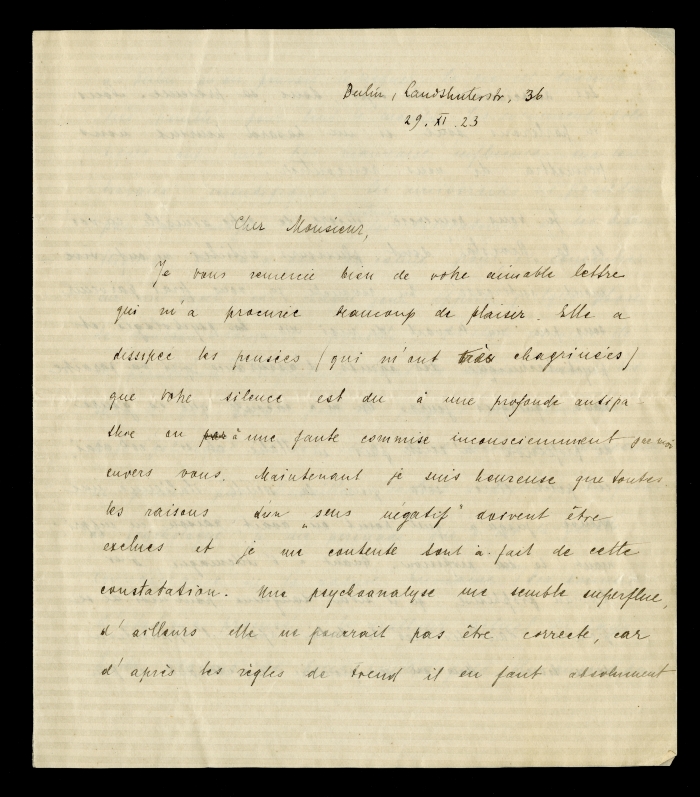 Berlin, Landshuterstr, 36
29. XI. 23
Cher Monsieur,
Je vous remercie bien de votre aimable lettre
qui m'a procurée beaucoup de plaiser. Elle a
dissipée les pensées (qui m'ont très chagrinées)
que votre silence est du à une profonde antipa-
thie ou par à une faute commise inconsciemment par moi
envers vous. Maintenant je suis heureuse que toutes
les raisons d'un „sens negatif" doivent être
exclues et je me contente tout à fait de cette
constatation. Une psychoanalyse me semble superflue,
d'ailleurs elle ne pourait pas être correcte, car
d'après les règles de Freud il en faut absolument